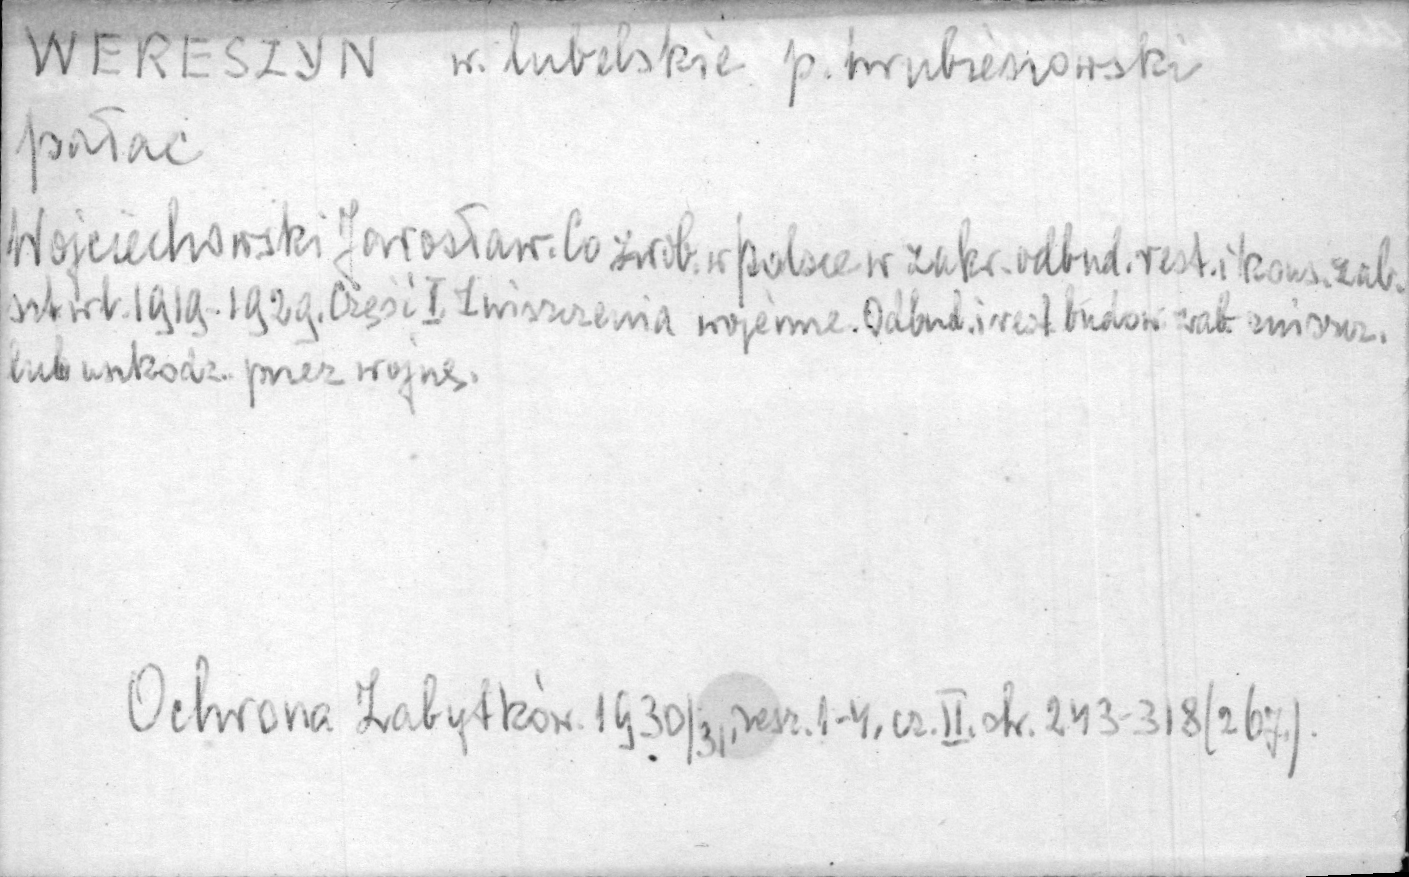 WERESZYN w. lubelskie p. hrubieszowski
pałac
Wojciechowski Jarosław. Co zrob. w Polsce w zakr. odbud. rest. i kons. zab.
szt w l. 1919-1929. Część I Zniszczenia wojenne. Odbud. i rest budow zab zniszcz.
lub uszkodz. przez wojnę.
Ochrona Zabytków. 1930/31, zesz. 1-4, cz. II. str. 243-318 (267.).